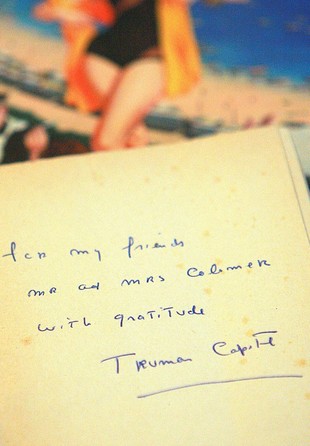 for my friends
MR and MRS Colomer
with gratitude
Truman Capote